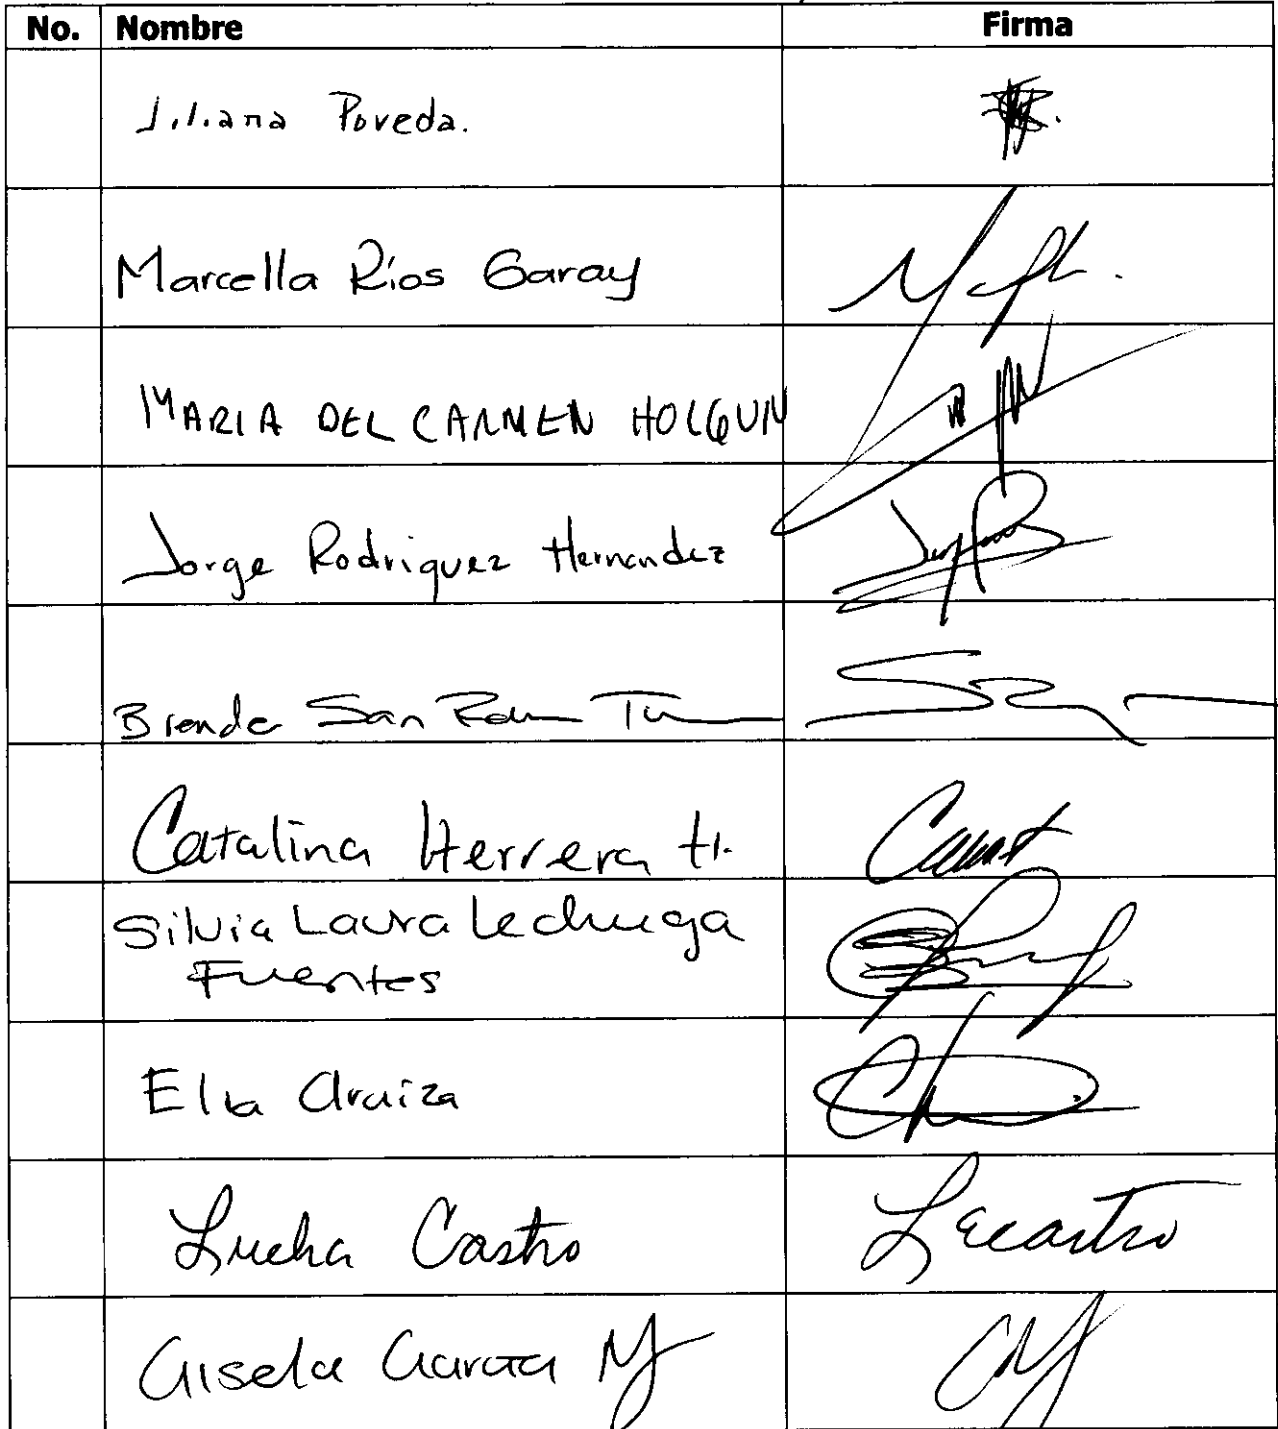 No. Nombre Firma
Liliana Poveda.
Marcella Ríos Garay
MARIA DEL CARMEN HOLGUIN
Jorge Rodriguez Hernandez
Brenda San
Catalina Herrera H.
Silvia Laura Lechuga
Fuentes
Elba Araiza
Lucha Castro Lecastro
Gisela García M